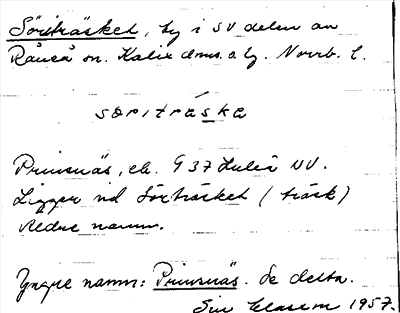 Söriträsket, by i SV delen av
Råneå sn. Kalix dms. o lg. Norrb. l.
söritráska
Prinsnäs, ek. 937 Luleå NV.
Ligger vid Sörträsket (träsk)
Äldre namn.
Yngre namn: Prinsnäs. Se detta.
Siv Clasem 1957.